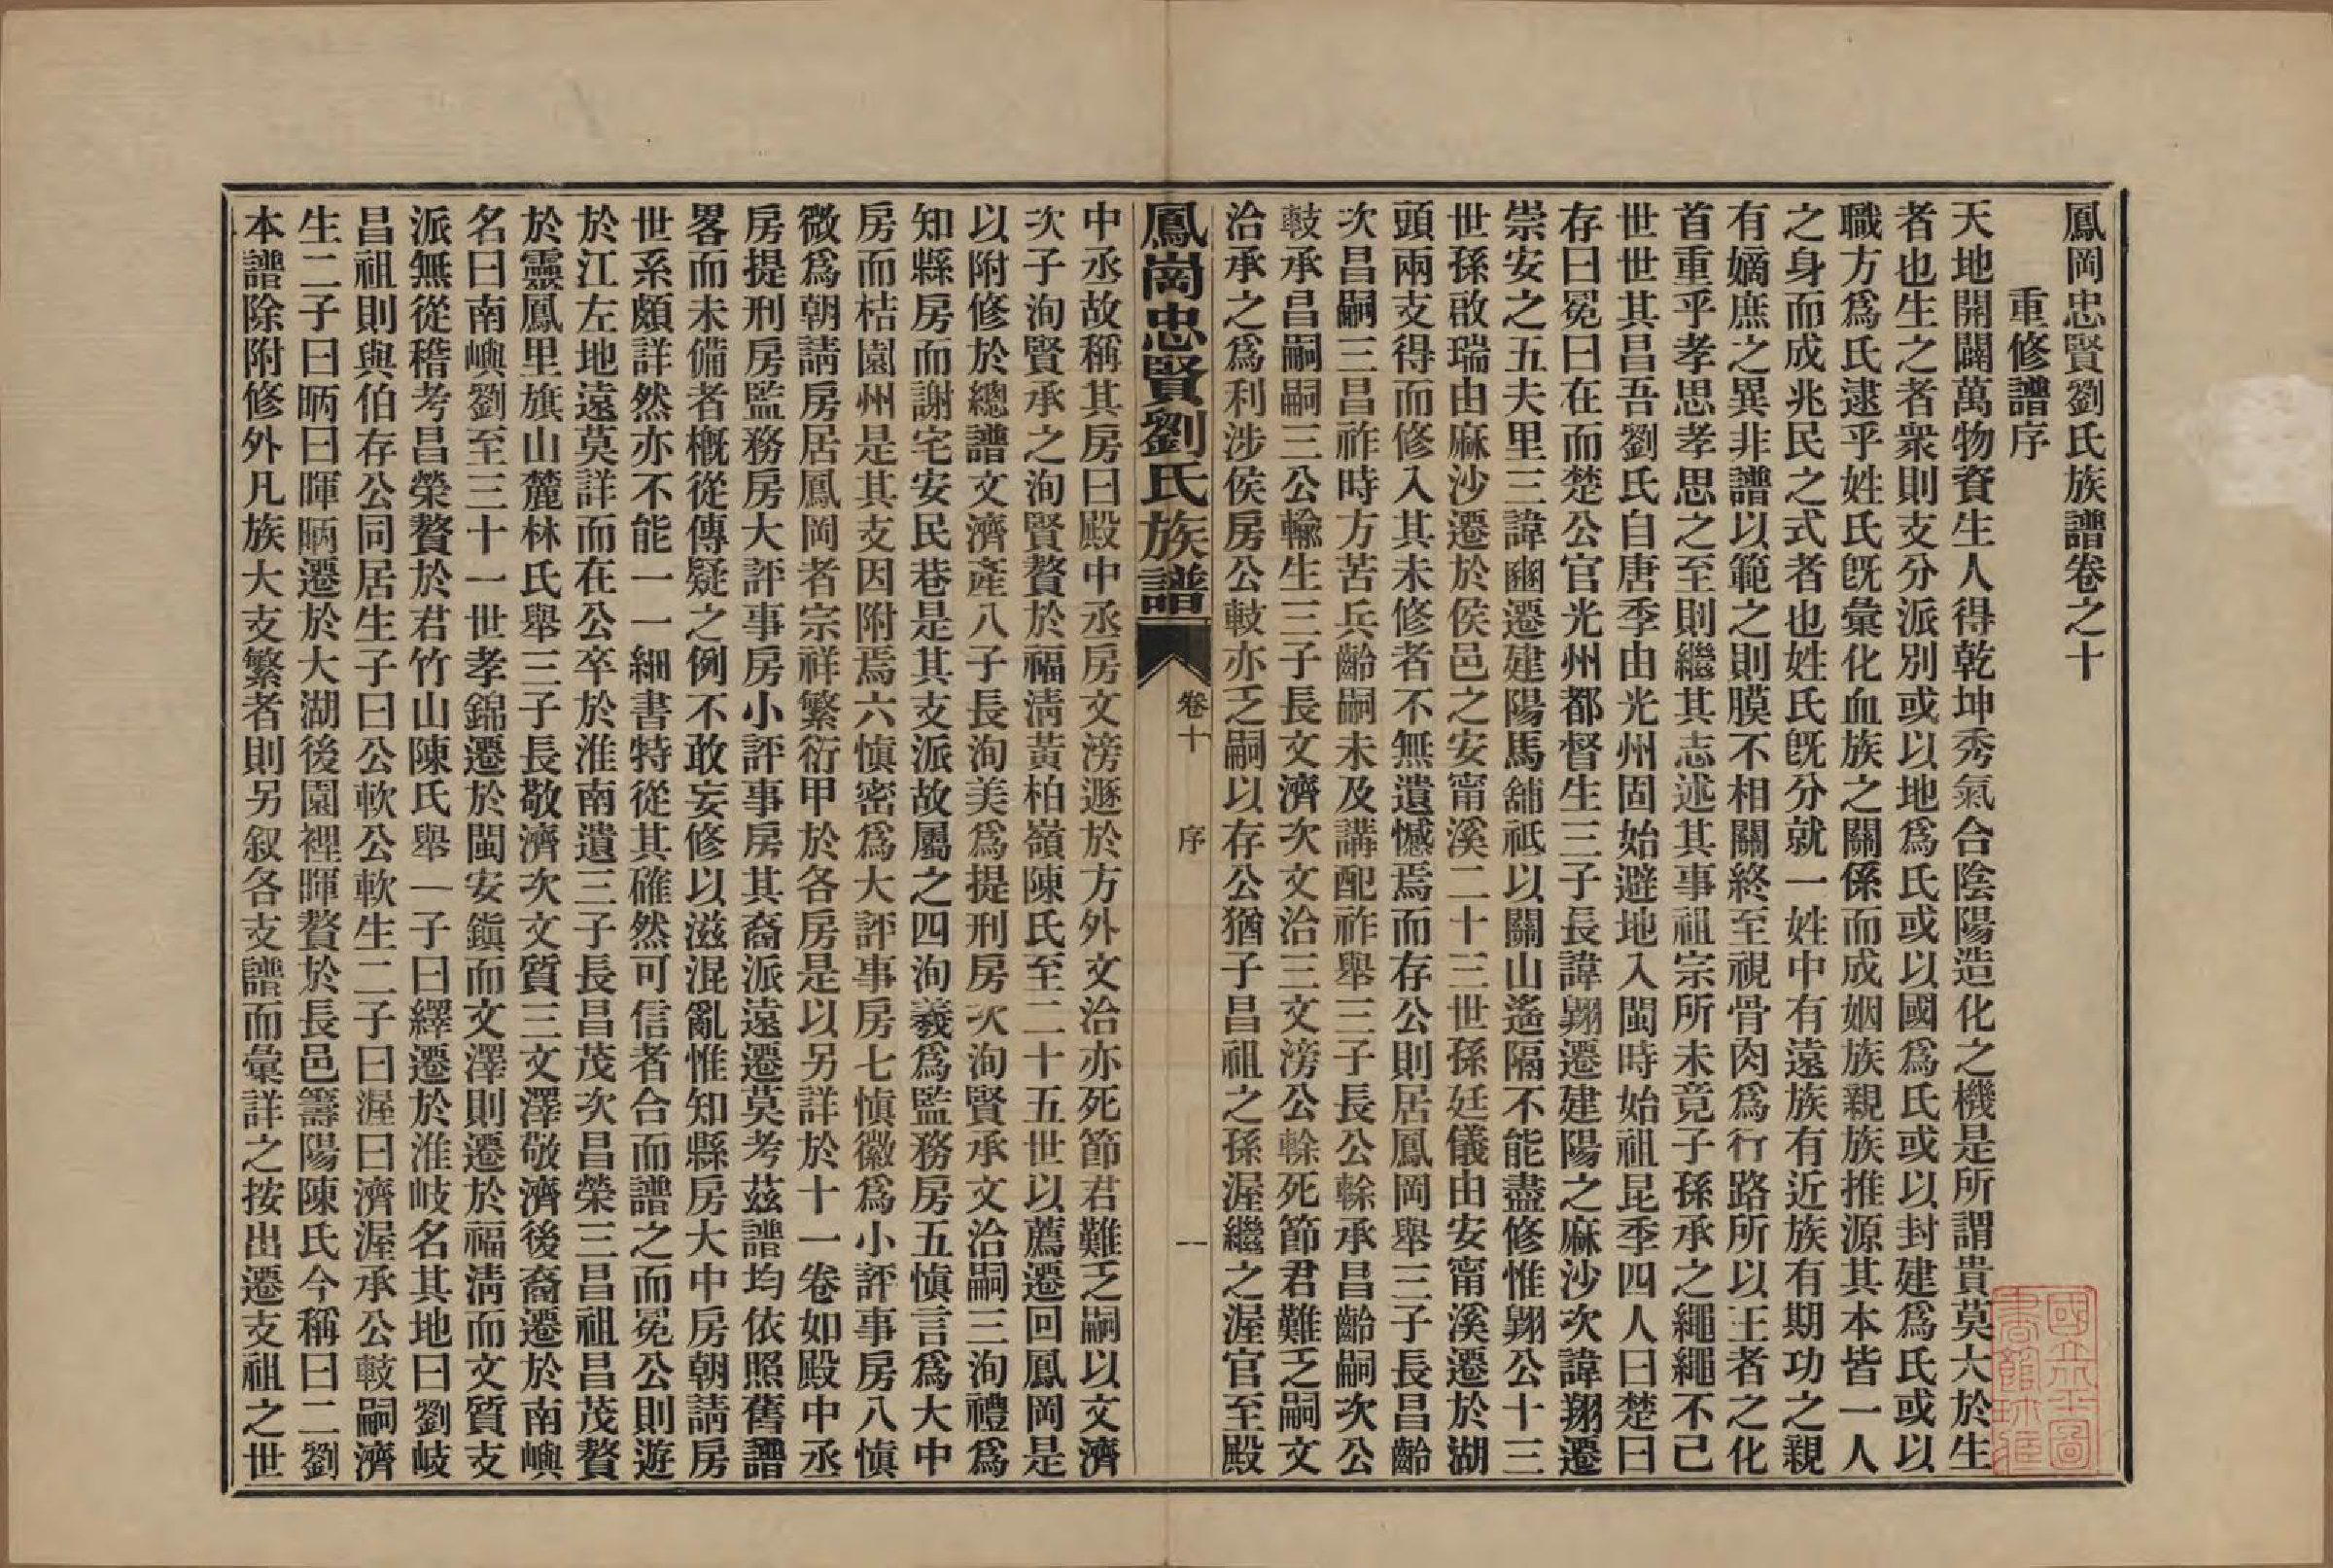 鳳岡忠賢劉氏族譜卷之十
重修譜序
天地開闢萬物資生人得乾坤秀氣合陰陽造化之機是所謂貴莫大於生
者也生之者衆則支分派別或以地爲氏或以國爲氏或以封建爲氏或以
職方爲氏逮乎姓氏旣彙化血族之關係而成姻族親族推源其本皆一人
之身而成兆民之式者也姓氏旣分就一姓中有遠族有近族有期功之親
有嫡庶之異非譜以範之則膜不相關終至視骨肉爲行路所以王者之化
首重乎孝思孝思之至則繼其志述其事祖宗所未竟子孫承之繩繩不已
世世其昌吾劉氏自唐季由光州固始避地入閩時始祖昆季四人曰楚曰
存曰冕曰在而楚公官光州都督生三子長諱翺遷建陽之麻沙次諱翔遷
崇安之五夫里三諱豳遷建陽馬舖祇以關山遙隔不能盡修惟翺公十三
世孫啟瑞由麻沙遷於侯邑之安甯溪二十三世孫廷儀由安甯溪遷於湖
頭兩支得而修入其未修者不無遺憾焉而存公則居鳳岡舉三子長昌齡
次昌嗣三昌祚時方苦兵齡嗣未及講配祚舉三子長公榦承昌齡嗣次公
㪈承昌嗣嗣三公輸生三子長文濟次文治三文滂公榦死節君難乏嗣文
治承之爲利涉侯房公㪈亦乏嗣以存公猶子昌祖之孫渥繼之渥官至殿
鳳崗忠賢劉氏族譜
卷十
序
一
中丞故稱其房曰殿中丞房文滂遯於方外文治亦死節君難乏嗣以文濟
次子洵賢承之洵賢贅於福淸黃柏嶺陳氏至二十五世以薦遷回鳳岡是
以附修於總譜文濟產八子長洵美爲提刑房次洵賢承文治嗣三洵禮爲
知縣房而謝宅安民巷是其支派故屬之四洵羲爲監務房五愼言爲大中
房而桔園州是其支因附焉六愼密爲大評事房七愼徽爲小評事房八愼
微爲朝請房居鳳岡者宗祥繁衍甲於各房是以另詳於十一卷如殿中丞
房提刑房監務房大評事房小評事房其裔派遠遷莫考茲譜均依照舊譜
畧而未備者槪從傳疑之例不敢妄修以滋混亂惟知縣房大中房朝請房
世系頗詳然亦不能一一細書特從其確然可信者合而譜之而冕公則遊
於江左地遠莫詳而在公卒於淮南遺三子長昌茂次昌榮三昌祖昌茂贅
於靈鳳里旗山麓林氏舉三子長敬濟次文質三文澤敬濟後裔遷於南嶼
名曰南嶼劉至三十一世孝錦遷於閩安鎭而文澤則遷於福淸而文質支
派無從稽考昌榮贅於君竹山陳氏舉一子曰繹遷於淮岐名其地曰劉岐
昌祖則與伯存公同居生子曰公軟公軟生二子曰渥曰濟渥承公㪈嗣濟
生二子曰昞曰暉昞遷於大湖後園裡暉贅於長邑籌陽陳氏今稱曰二劉
本譜除附修外凡族大支繁者則另叙各支譜而彙詳之按出遷支祖之世
國立北平圖
書館珍藏